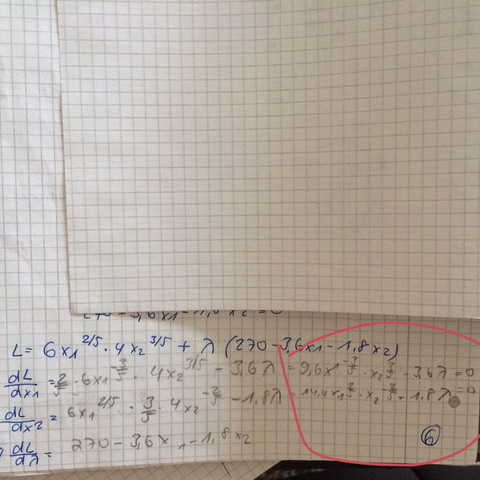 270 - 3,6x1 - 1,8x2 = 0
L = 6x1^2/5 · 4x2^3/5 + λ (270 - 3,6x1 - 1,8x2)
dL/dx1 = 2/5 · 6x1^-3/5 · 4x2^3/5 - 3,6λ = 9,6x1^-3/5 · x2^3/5 - 3,6λ = 0
dL/dx2 = 6x1^2/5 · 3/5 · 4x2^-2/5 - 1,8λ = 14,4x1^2/5 · x2^-2/5 - 1,8λ = 0
dL/dλ = 270 - 3,6x1 - 1,8x2
6